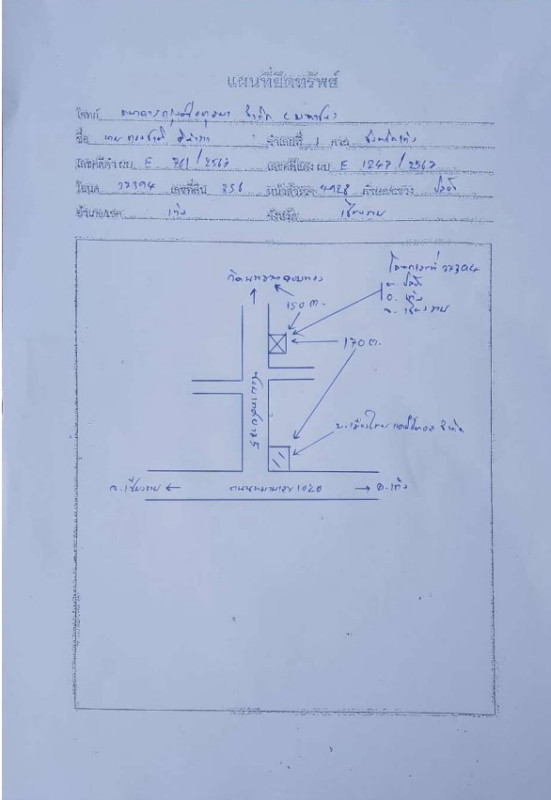 แผนที่ยึดทรัพย์
โจทก์ ธนาคารกรุงศรีอยุธยา จำกัด (มหาชน)
ชื่อ นาย จำเลยที่ 1 ศาล จังหวัดเทิง
เลขคดีดำ ผบ E 761/2567 เลขคดีแดง ผบ E 1247/2567
โฉนด 22394 เลขที่ดิน 256 หน้าสำรวจ 4928 ตำบล/แขวง ปล้อง
อำเภอ/เขต เทิง จังหวัด เชียงราย
โฉนดเลขที่ 22394
ต. ปล้อง
อ. เทิง
จ. เชียงราย
150 ม.
170 ม.
จำกัด
จ.เชียงราย ← ถนนหมายเลข 1020 → อ.เทิง